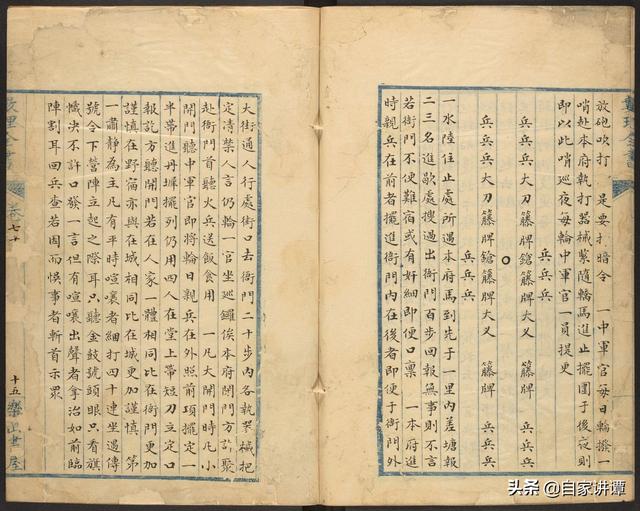 放砲吹打　是要打暗令　一中軍官每日輪撥一
哨赴本府執打器械緊隨轎馬進止擺圍于後夜則
即以此哨巡夜每輪中軍官一員提更
兵兵兵
兵兵兵大刀籐牌鎗籐牌大义　籐牌　兵兵兵
兵兵兵大刀籐牌鎗籐牌大义　籐牌　兵兵兵
兵兵兵
一水陸住止處所遇本府馬到先于一里內差塘報
二三名進歇處搜過出衙門百步回報無事則不言
若衙門不便難宿或有奸細即便口稟　一本府進
時親兵在前者擺進衙門內在後者即便于衙門外
大街通人行處街口去衙門二十步內各執器械把
定清禁人言仍輪一官坐巡鑼俟本府閉門方許聚
赴衙門首聽火兵送飯食用　一凡大開門時凡小
開門聽中軍官即將輪日親兵在外照前項擺定一
半帶進丹墀擺列仍用四人在堂上帶短刀立定口
報訖方聽開門若在人家一體相同比在衙門更加
謹慎在野宿亦與在城相同比在城更加謹慎　第
一肅靜為主凡有半時喧嚷者細打四十連坐遇傳
號令下營陣立起之際耳只聽金鼓號頭眼只看旗
幟決不許口發一言但有喧嚷出聲者拿治如前臨
陣割耳回兵查若因而悞事者斬首示眾
理全書
卷七十
十五
書屋
头条 @自家讲谭